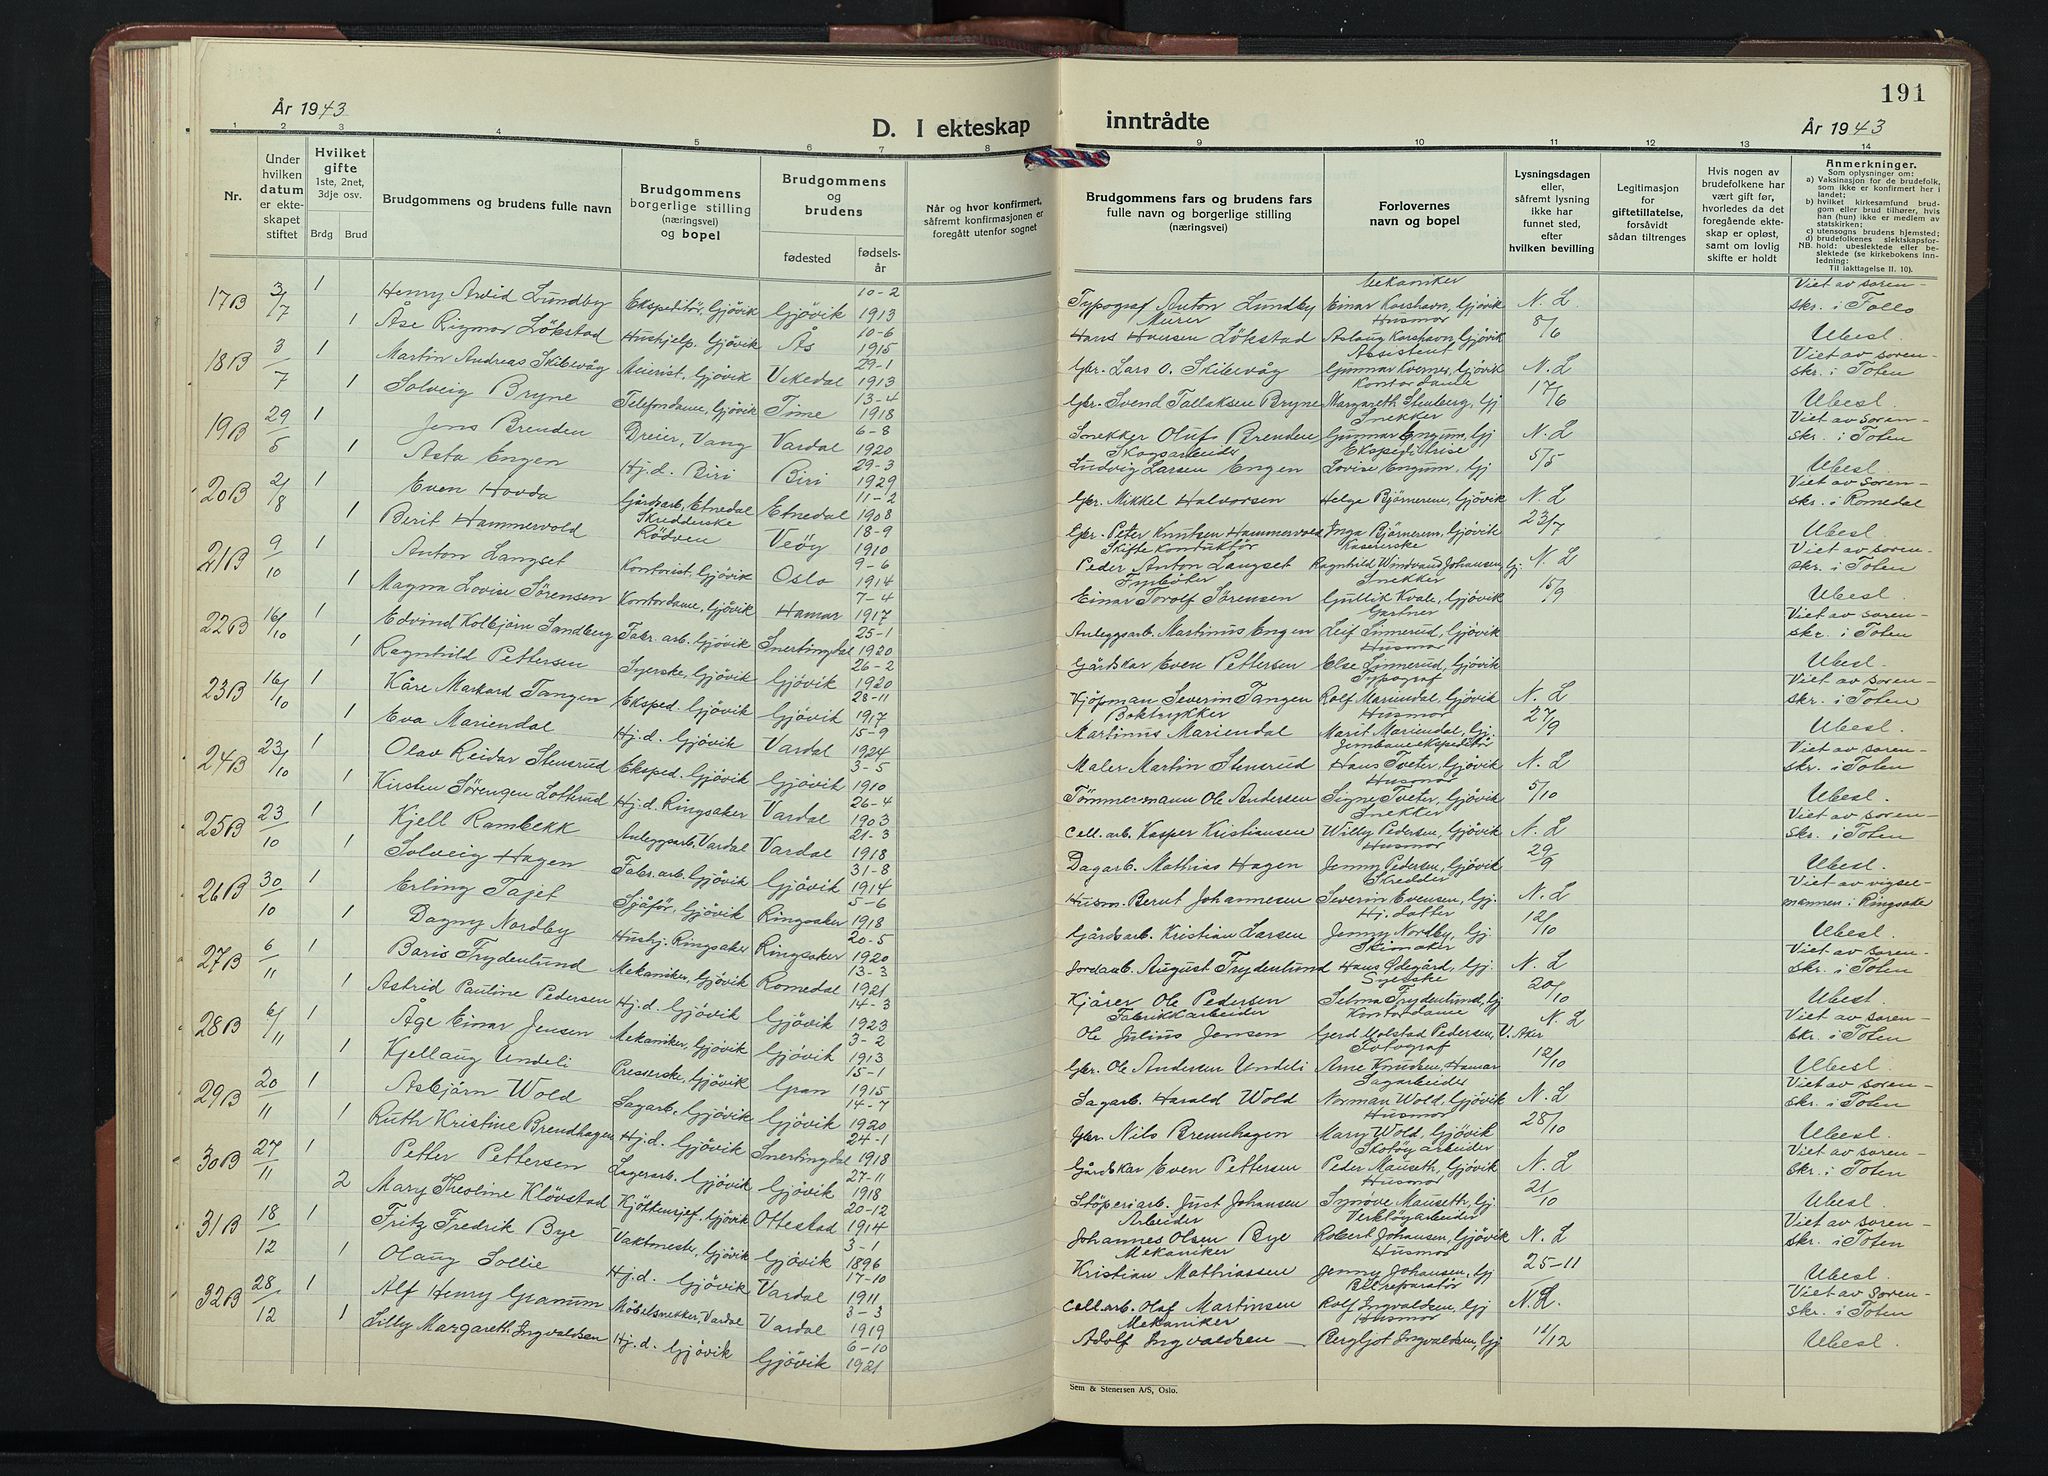 191
År 1943
D. I ekteskap inntrådte
År 1943
1 2 3 4 5 6 7 8 9 10 11 12 13 14
Nr.
Under hvilken datum er ekteskapet stiftet
Hvilket gifte
1ste, 2net, 3dje osv.
Brdg
Brud
Brudgommens og brudens fulle navn
Brudgommens borgerlige stilling (næringsvei) og bopel
Brudgommens og brudens
fødested
fødselsår
Når og hvor konfirmert, såfremt konfirmasjonen er foregått utenfor sognet
Brudgommens fars og brudens fars fulle navn og borgerlige stilling (næringsvei)
Forlovernes navn og bopel
Lysningsdagen eller, såfremt lysning ikke har funnet sted, efter hvilken bevilling
Legitimasjon for giftetillatelse, forsåvidt sådan tiltrenges
Hvis nogen av brudefolkene har vært gift før, hvorledes da det foregående ekteskap er opløst, samt om lovlig skifte er holdt
Anmerkninger.
Som oplysninger om:
a) Vaksinasjon for de brudefolk, som ikke er konfirmert her i landet;
b) hvilket kirkesamfund brudgom eller brud tilhører, hvis han (hun) ikke er medlem av statskirken;
c) utensogns brudens hjemsted;
d) brudefolkenes slektskapsforhold: ubeslektede eller beslektede (se kirkebokens innledning:
NB. Til iakttagelse II. 10).
17B 3/7 1 Henry Arvid Lundby Ekspeditör, Gjövik Gjövik 10-2 1913 Typograf Anton Lundby mekaniker Einar Korshavn, Gjövik N. L. Viet av sorenskr. i Toten
1 Åse Rigmor Lökstad Hushjelp, Gjövik Ås 10-6 1915 Murer Hans Hansen Lökstad Husmor Aslaug Korshavn, Gjövik 8/6 Ubesl.
18B 3/7 1 Martin Andreas Skibevåg Meierist, Gjövik Vikedal 29-1 1913 Gbr. Lars O. Skibevåg Assistent Gunnar Kvernes, Gjövik N. L Viet av sorenskr. i Toten
1 Solveig Bryne Telefondame, Gjövik Time 13-4 1918 Gbr. Svend Tallaksen Bryne Kontordame Margareth Stenberg, Gj 17/6 Ubesl.
19B 29/5 1 Jens Brenden Dreier, Vang Vardal 6-8 1920 Snekker Oluf Brenden Snekker Gunnar Engum, Gj N. L Viet av sorenskr. i Toten
1 Asta Engen Hj.d. Biri Biri 29-3 1929 Skogsarbeider Ludvig Larsen Engen Ekspeditrise Lovise Engum, Gj 5/5 Ubesl.
20B 2/8 1 Even Hovda Gårdsarb, Etnedal Etnedal 11-2 1908 Gbr. Mikkel Halvorsen Helge Bjørnerem, Gjövik N. L Viet av sorenskr. i Romedal
1 Berit Hammervold Skredderske Rödven Veöy 18-9 1910 Gbr. Peter Knutsen Hammervold Inga Bjørnerem, Gjövik 23/7 Ubesl.
21B 9/10 1 Anton Langset Kontorist, Gjövik Oslo 9-6 1914 Skiftekonduktør Peder Anton Langset Kasserske Ragnhild Windvand Johansen, Gj. N. L Viet av sorenskr. i Toten
1 Magna Lovise Sørensen Kontordame, Gjövik Hamar 7-4 1917 Einar Torolf Sørensen Snekker Gullik Kvale, Gjövik 15/9 Ubesl.
22B 16/10 1 Edvind Kolbjørn Sandberg Fabr. arb. Gjövik Snertingdal 25-1 1920 Anleggsarb. Martinus Engen Gartner Leif Linnerud, Gjövik Viet av sorenskr. i Toten
1 Ragnhild Pettersen Syerske, Gjövik Gjövik 26-2 1920 Gårdskar Even Pettersen Husmor Else Linnerud, Gjövik Ubesl.
23B 16/10 1 Kåre Markard Tangen Eksped. Gjövik Gjövik 28-11 1917 Kjöpman Severin Tangen Typograf Rolf Mariendal, Gjövik N. L Viet av sorenskr. i Toten
1 Eva Mariendal Hj.d. Gjövik Vardal 15-9 1924 Boktrykker Martinus Mariendal Husmor Marit Mariendal, Gj. 27/9 Ubesl.
24B 23/10 1 Olav Reidar Stensrud Eksped. Gjövik Gjövik 3-5 1910 Maler Martin Stensrud Jernbaneekspeditör Hans Tveter, Gjövik N. L Viet av sorenskr. i Toten
1 Kirsten Sörengen Lotterud Hj.d. Ringsaker Vardal 26-4 1903 Tömmermann Ole Andersen Husmor Signe Tveter, Gjövik 5/10 Ubesl.
25B 23/10 1 Kjell Rambekk Anleggsarb, Vardal Vardal 21-3 1918 Cell. arb. Kasper Kristiansen Snekker Willy Pedersen, Gjövik N. L Viet av sorenskr. i Toten
1 Solveig Hagen Fabr. arb. Gjövik Gjövik 31-8 1914 Dagarb. Mathias Hagen Husmor Jenny Pedersen, Gjövik 29/9 Ubesl.
26B 30/10 1 Erling Tajet Sjåför, Gjövik Ringsaker 5-6 1918 Husm. Bernt Johannesen Skredder Severin Evensen, Gj. N. L Viet av vigselmannen i Ringsaker
1 Dagny Nordby Hushj. Ringsaker Ringsaker 20-5 1920 Gårdsarb. Kristian Larsen Hj. datter Jenny Nordby, Gj. 12/10 Ubesl.
27B 6/11 1 Boris Frydenlund Mekaniker, Gjövik Romedal 13-3 1921 Jordarb. August Frydenlund Skimaker Hans Ødegård, Gj. N. L Viet av sorenskr. i Toten
1 Astrid Pauline Pedersen Hj.d. Gjövik Gjövik 14-3 1923 Kjörer Ole Pedersen Syerske Selma Frydenlund, Gj 20/10 Ubesl.
28B 6/11 1 Åge Einar Jensen Mekaniker, Gjövik Gjövik 3-2 1913 Fabrikkarbeider Ole Julius Jensen Kontordame Gerd Wolstad Pedersen, V. Aker N. L Viet av sorenskr. i Toten
1 Kjellaug Undeli Presserske, Gjövik Gran 15-1 1915 Gbr. Ole Andersen Undeli Fotograf Arne Knudsen, Hamar 12/10 Ubesl.
29B 20/11 1 Asbjörn Wold Sagarb, Gjövik Gjövik 14-7 1920 Sagarb. Harald Wold Sagarbeider Norman Wold, Gjövik N. L Viet av sorenskr. i Toten
1 Ruth Kristine Brendhagen Hj.d. Gjövik Snertingdal 24-1 1918 Gbr. Nils Brennhagen Husmor Mary Wold, Gjövik 28/10 Ubesl.
30B 27/11 1 Petter Pettersen Lagerarb. Gjövik Gjövik 27-11 1918 Gårdskar Even Pettersen Skotøyarbeider Peder Mauseth, Gjövik N. L Viet av sorenskr. i Toten
2 Mary Theoline Klövstad Kjöttensjef, Gjövik Ottestad 20-12 1914 Stöperiarb. Just Johansen Husmor Synöve Mauseth, Gj. 21/10 Ubesl.
31B 18/12 1 Fritz Fredrik Bye Vaktmester, Gjövik Gjövik 3-1 1896 Arbeider Johannes Olsen Bye Verktøyarbeider Robert Johansen, Gjövik N. L Viet av sorenskr. i Toten
1 Olaug Sollie Hj.d. Gjövik Vardal 17-10 1911 Mekaniker Kristian Mathiassen Husmor Jenny Johansen, Gj 25-11 Ubesl.
32B 28/12 1 Alf Henry Granum Möbelsnekker, Vardal Vardal 3-3 1919 Cell. arb. Olaf Martinsen Bilreparatør Rolf Ingvaldsen, Gj N. L. Viet av sorenskr. i Toten
1 Lilly Margareth Ingvaldsen Hj.d. Gjövik Gjövik 6-10 1921 Mekaniker Adolf Ingvaldsen Husmor Bergljot Ingvaldsen, Gj 11/12 Ubesl.
Sem & Stenersen A/S, Oslo.